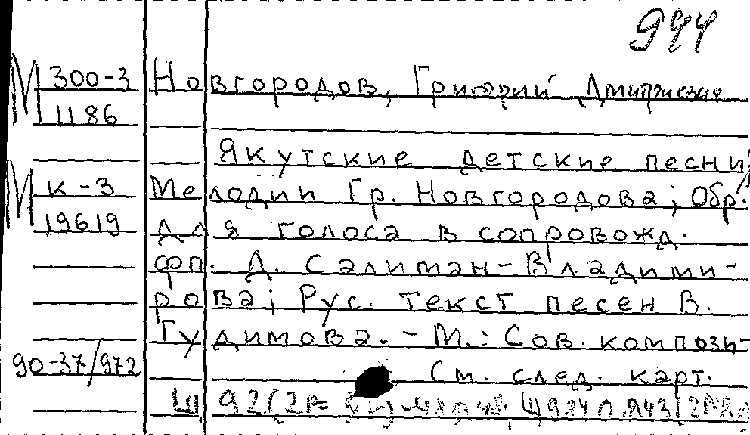 944
М 300-3 Новгородов, Григорий Дмитриевич
1186
Якутские детские песни;
М К-3 Мелодии Гр. Новгородова; Обр.
19619 для голоса в сопровожд.
фп. Д. Салиман-Владими-
рова; Рус. текст песен В.
Гудимова. - М.: Сов. компози-
90-37/972 См. след. карт.
Щ 92(2Р